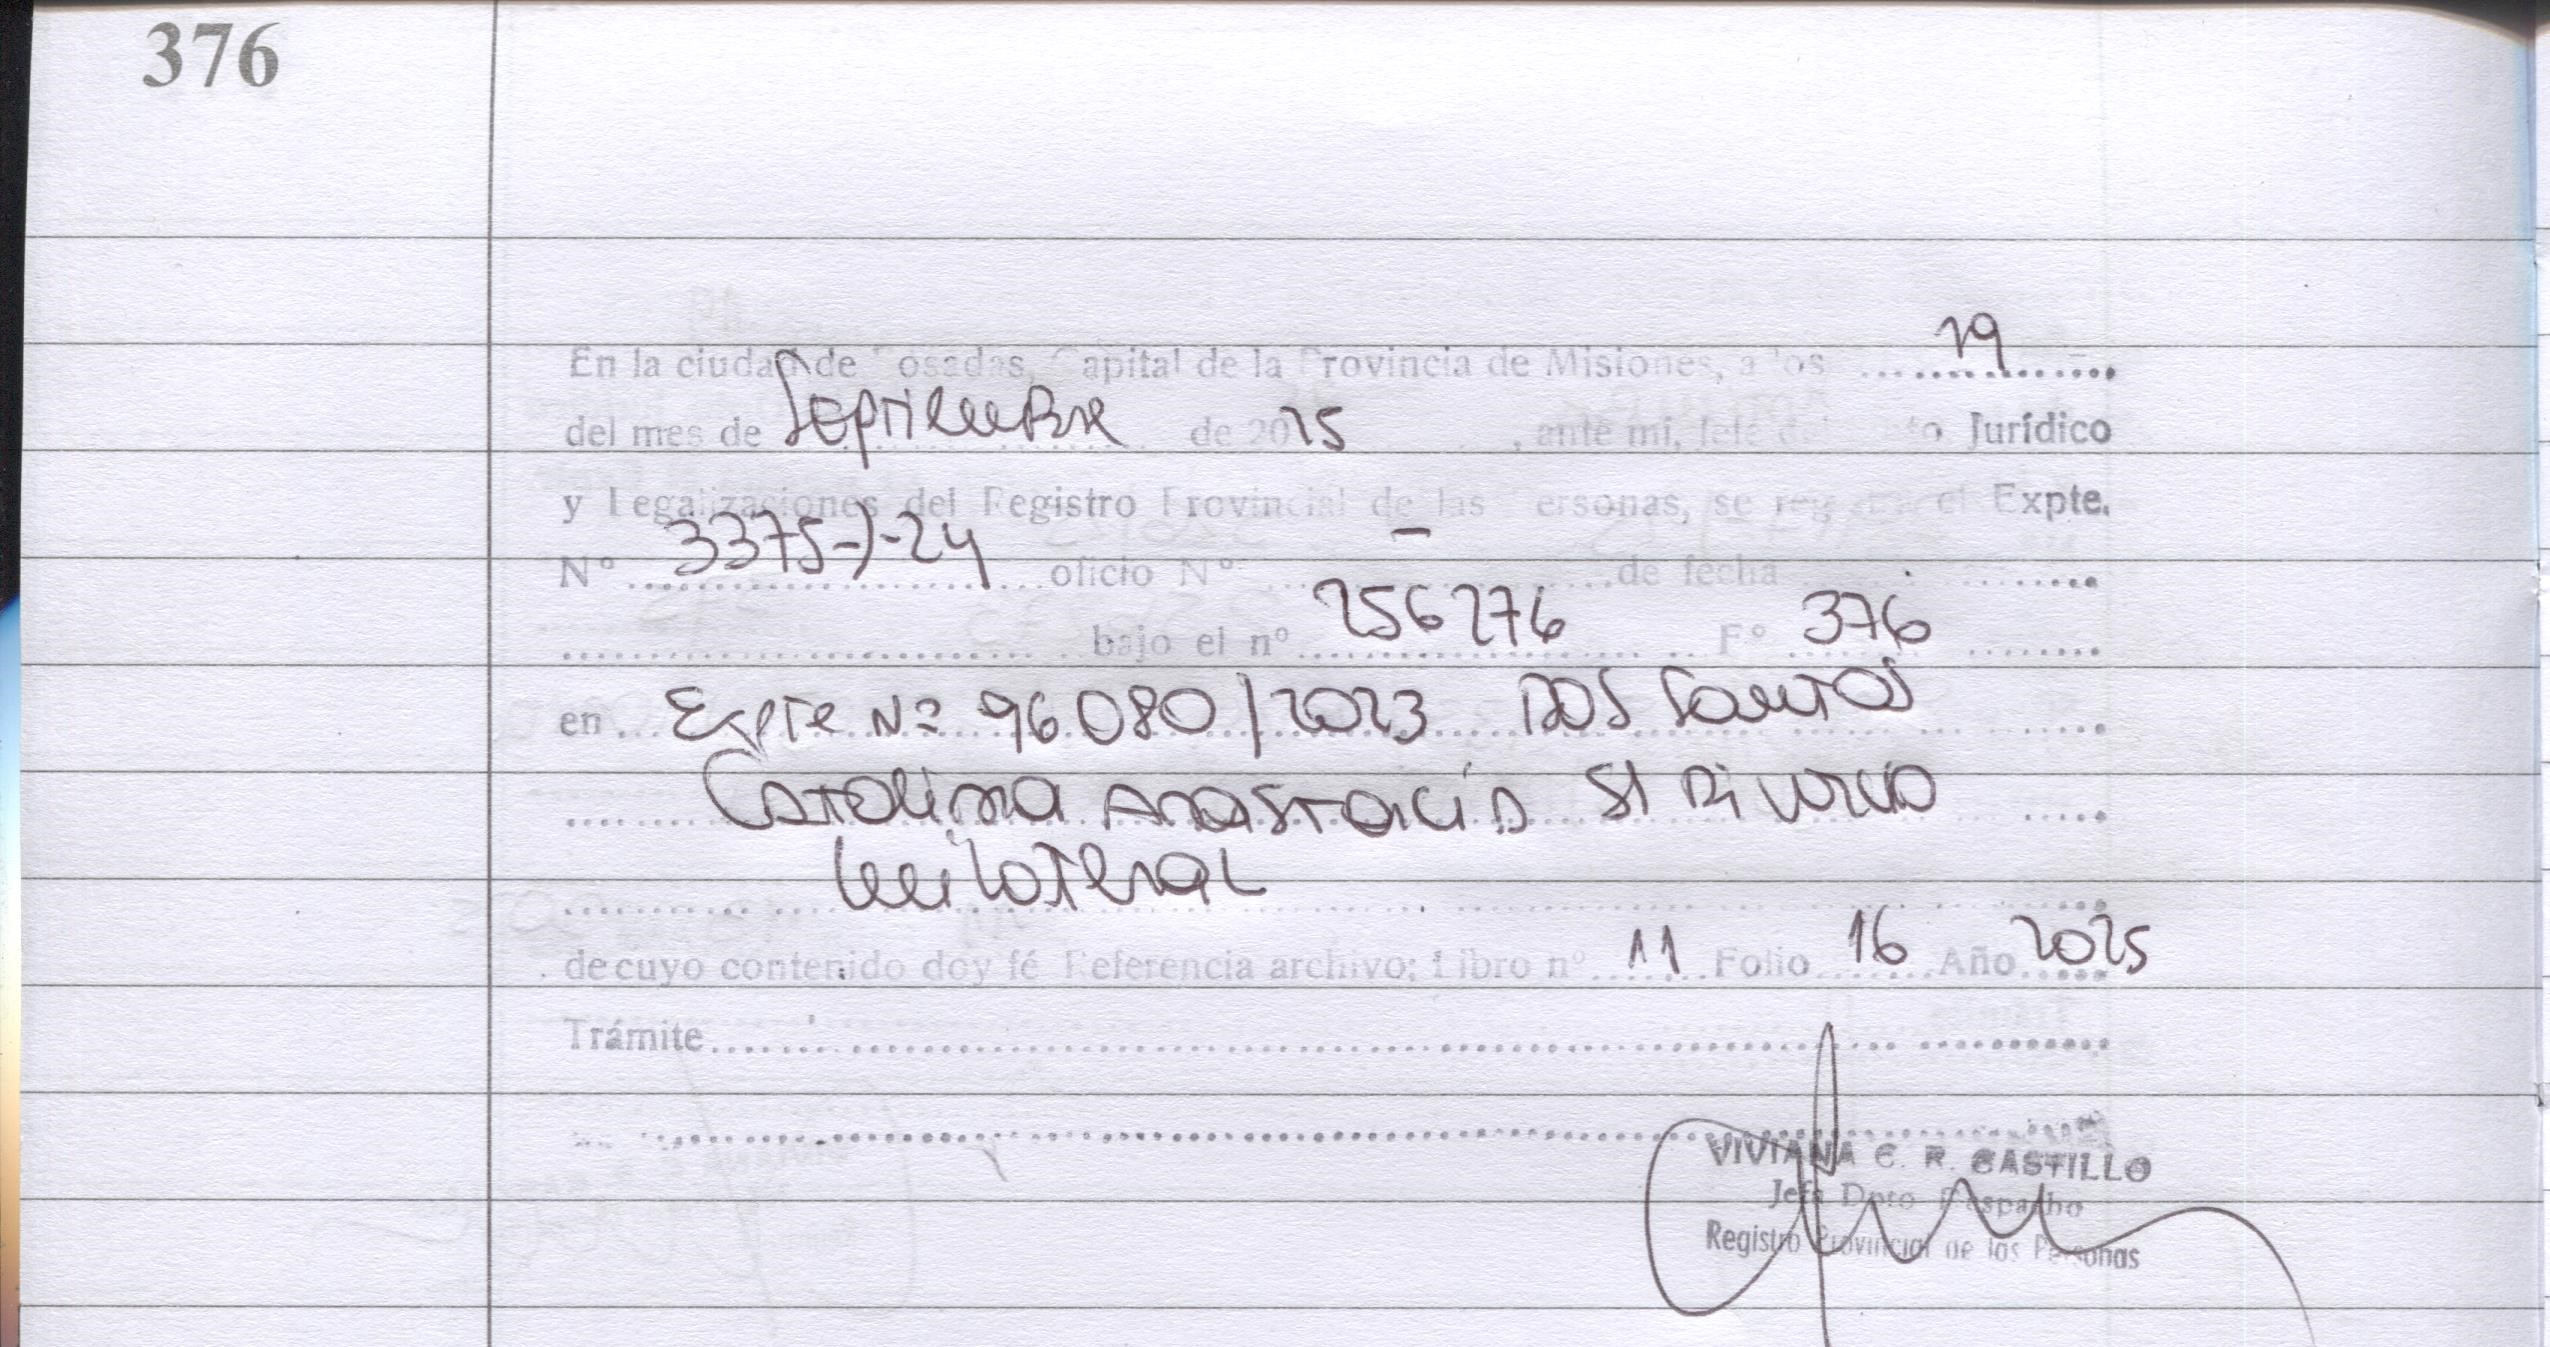 376
En la ciudad de Posadas, Capital de la Provincia de Misiones, a los 19
del mes de Septiembre de 2025, ante mi, Jefe del Dpto Jurídico
y Legalizaciones del Registro Provincial de las Personas, se registra el Expte.
Nº 3375-J-24 oficio Nº - de fecha
bajo el nº 256276 Fº 376
en Expte Nº 96080/2023 DOS Santos
Catalina Anastacia S/ Divorcio
Unilateral
de cuyo contenido doy fé Referencia archivo: Libro nº 11 Folio 16 Año 2025
Trámite
VIVIANA C. R. CASTILLO
Jefa Dpto Despacho
Registro Provincial de las Personas